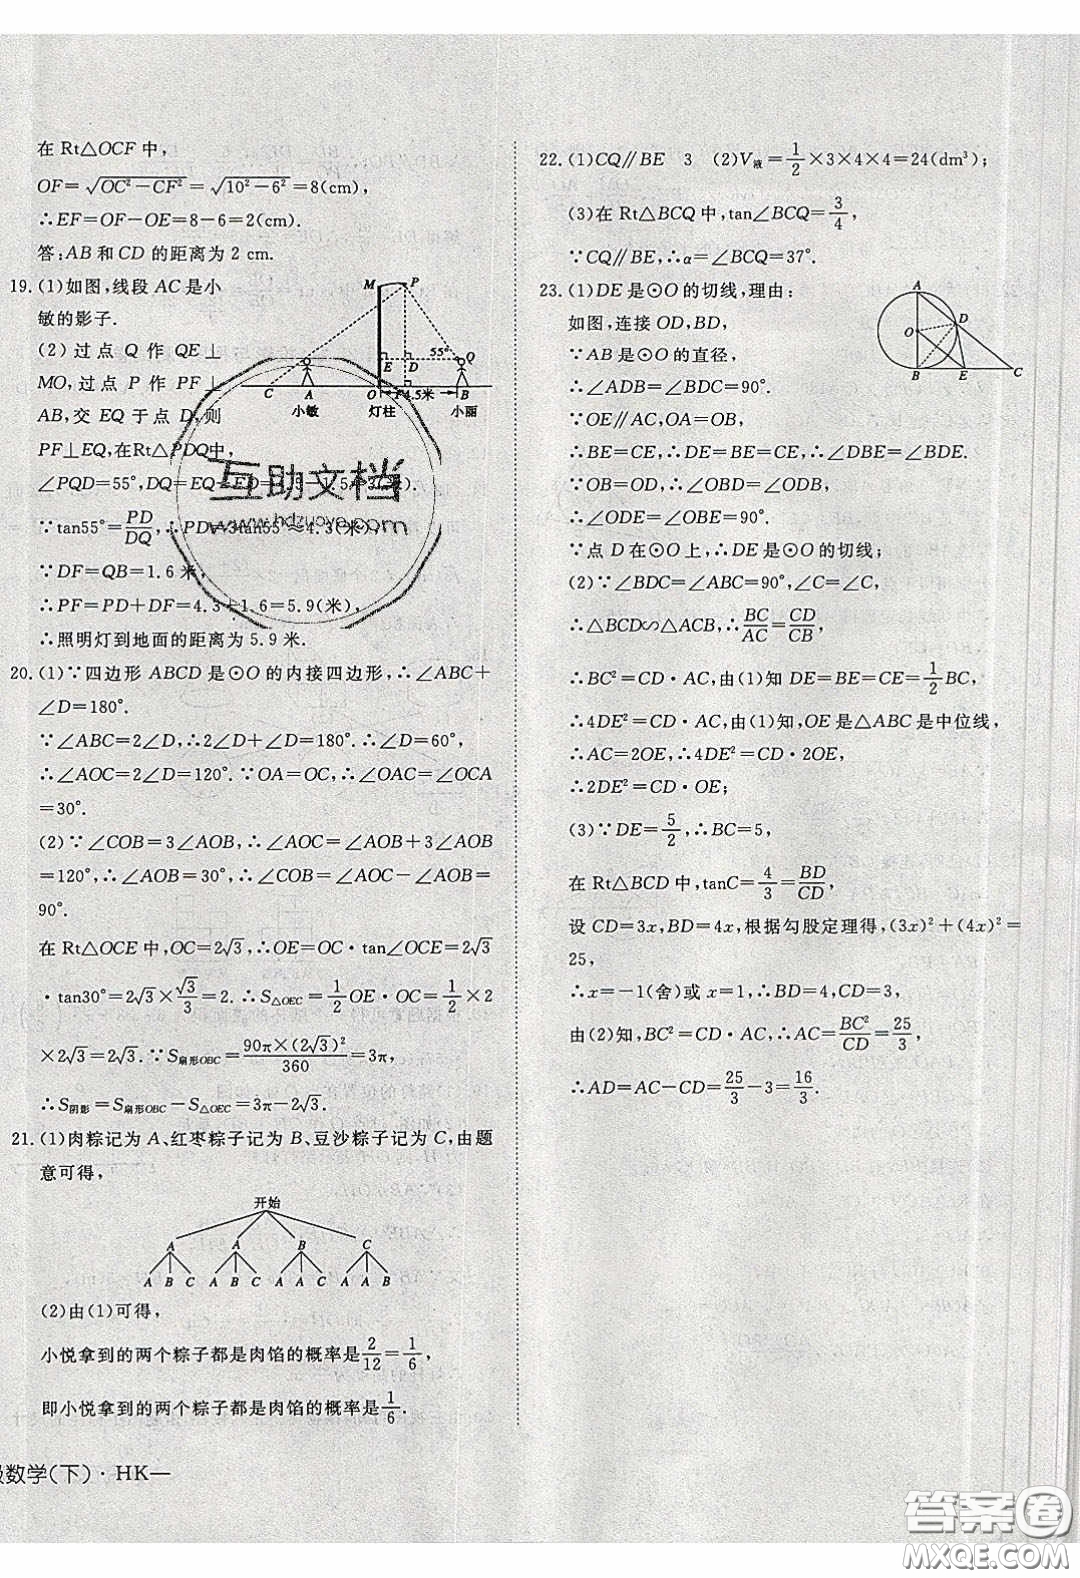 在Rt△OCF中,
OF=√(OC²-CF²)=√(10²-6²)=8(cm),
∴EF=OF-OE=8-6=2(cm).
答:AB和CD的距离为2 cm.
19.(1)如图,线段AC是小
敏的影子.
(2)过点Q作QE⊥
MO,过点P作PF⊥
AB,交EQ于点D,则
PF⊥EQ,在Rt△PDQ中,
∠PQD=55°,DQ=EQ-ED
∵tan55°=PD/DQ,∴PD=3tan55°≈4.3(米),
∵DF=QB=1.6米,
∴PF=PD+DF=4.3+1.6=5.9(米),
∴照明灯到地面的距离为5.9米.
M P
55° Q
E D
C A O F 4.5米 B
小敏 灯柱 小丽
互助文档
www.hdzuoye.com
20.(1)∵四边形ABCD是⊙O的内接四边形,∴∠ABC+
∠D=180°.
∵∠ABC=2∠D,∴2∠D+∠D=180°.∴∠D=60°,
∴∠AOC=2∠D=120°.∵OA=OC,∴∠OAC=∠OCA
=30°.
(2)∵∠COB=3∠AOB,∴∠AOC=∠AOB+3∠AOB
=120°,∴∠AOB=30°,∴∠COB=∠AOC-∠AOB=
90°.
在Rt△OCE中,OC=2√3,∴OE=OC·tan∠OCE=2√3
·tan30°=2√3×√3/3=2.∴S△OEC=1/2OE·OC=1/2×2
×2√3=2√3.∵S扇形OBC=90π×(2√3)²/360=3π,
∴S阴影=S扇形OBC-S△OEC=3π-2√3.
21.(1)肉粽记为A、红枣粽子记为B、豆沙粽子记为C,由题
意可得,
开始
A A B C
A B C A B C A A C A A B
(2)由(1)可得,
小悦拿到的两个粽子都是肉馅的概率是2/12=1/6,
即小悦拿到的两个粽子都是肉馅的概率是1/6.
级数学(下)·HK—
22.(1)CQ∥BE 3 (2)V液=1/2×3×4×4=24(dm³);
(3)在Rt△BCQ中,tan∠BCQ=3/4,
∵CQ∥BE,∴α=∠BCQ=37°.
23.(1)DE是⊙O的切线,理由:
如图,连接OD,BD,
∵AB是⊙O的直径,
∴∠ADB=∠BDC=90°.
∵OE∥AC,OA=OB,
∴BE=CE,∴DE=BE=CE,∴∠DBE=∠BDE.
∵OB=OD,∴∠ODB=∠OBD,
∴∠ODE=∠OBE=90°.
∵点D在⊙O上,∴DE是⊙O的切线;
(2)∵∠BDC=∠ABC=90°,∠C=∠C,
∴△BCD∽△ACB,∴BC/AC=CD/CB,
∴BC²=CD·AC,由(1)知DE=BE=CE=1/2BC,
∴4DE²=CD·AC,由(1)知,OE是△ABC是中位线,
∴AC=2OE,∴4DE²=CD·2OE,
∴2DE²=CD·OE;
(3)∵DE=5/2,∴BC=5,
在Rt△BCD中,tanC=4/3=BD/CD,
设CD=3x,BD=4x,根据勾股定理得,(3x)²+(4x)²=
25,
∴x=-1(舍)或x=1,∴BD=4,CD=3,
由(2)知,BC²=CD·AC,∴AC=BC²/CD=25/3,
∴AD=AC-CD=25/3-3=16/3.
A
O D
B E C
答案圈
MXQE.COM